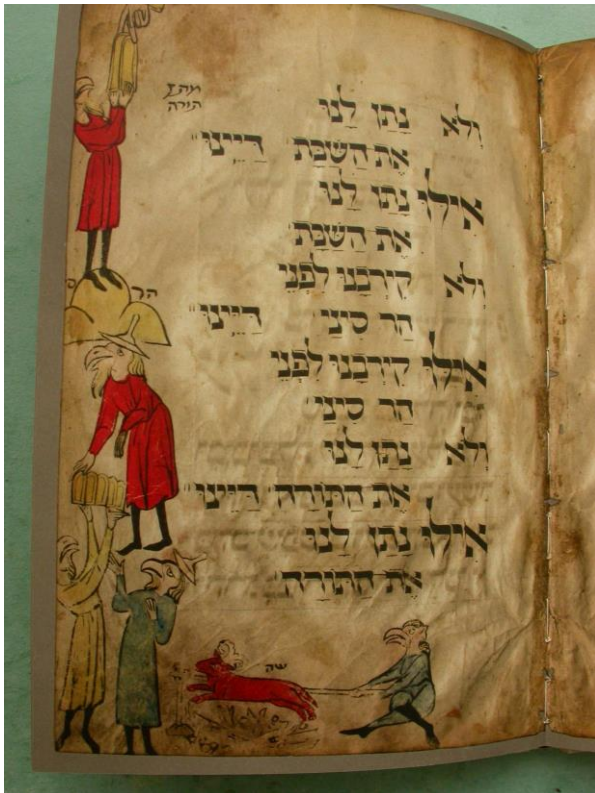 מתן
תורה
וְלֹא נָתַן לָנוּ
אֶת הַשַׁבָּת דַיֵינוּ
אִילוּ נָתַן לָנוּ
אֶת הַשַׁבָּת
וְלֹא קֵירְבָנוּ לִפְנֵי
הַר סִינַי דַיֵינוּ
הר
אִילוּ קֵירְבָנוּ לִפְנֵי
הַר סִינַי
וְלֹא נָתַן לָנוּ
אֶת הַתּוֹרָה דַיֵינוּ
אִילוּ נָתַן לָנוּ
אֶת הַתּוֹרָה
שה